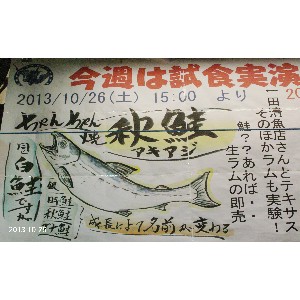 今週は試食実演
2013/10/26(土) 15:00 より 20
ちゃんちゃん焼
秋鮭
アキアジ
白鮭
ですね
銀鮭
時鮭
秋鮭
成長によって名前が変わる
一田漬魚店さんとテキサス
そのほかラムも実験!
鮭??あれば・・
生ラムの即売
2013 10 26